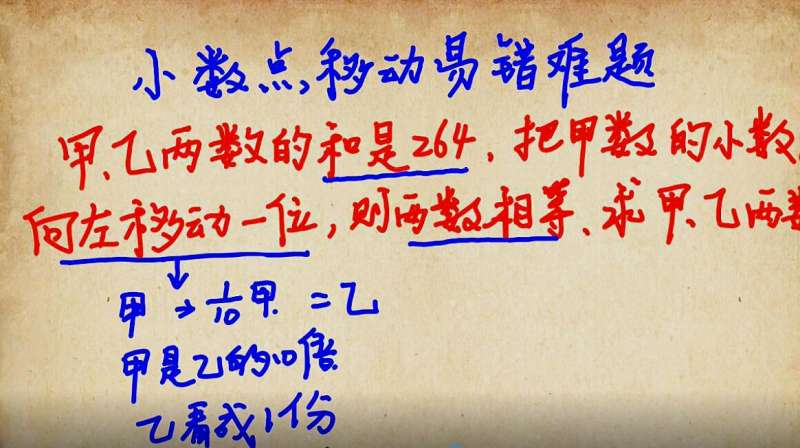 小数点移动易错难题
甲、乙两数的和是264，把甲数的小数
向左移动一位，则两数相等、求甲、乙两数
甲→1/10甲=乙
甲是乙的10倍
乙看成1份